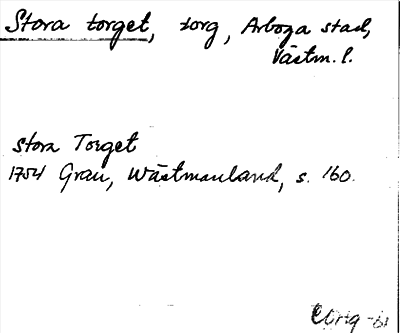 Stora torget, torg, Arboga stad,
Västm. l.
stora Torget
1754 Grau, Wästmanland, s. 160.